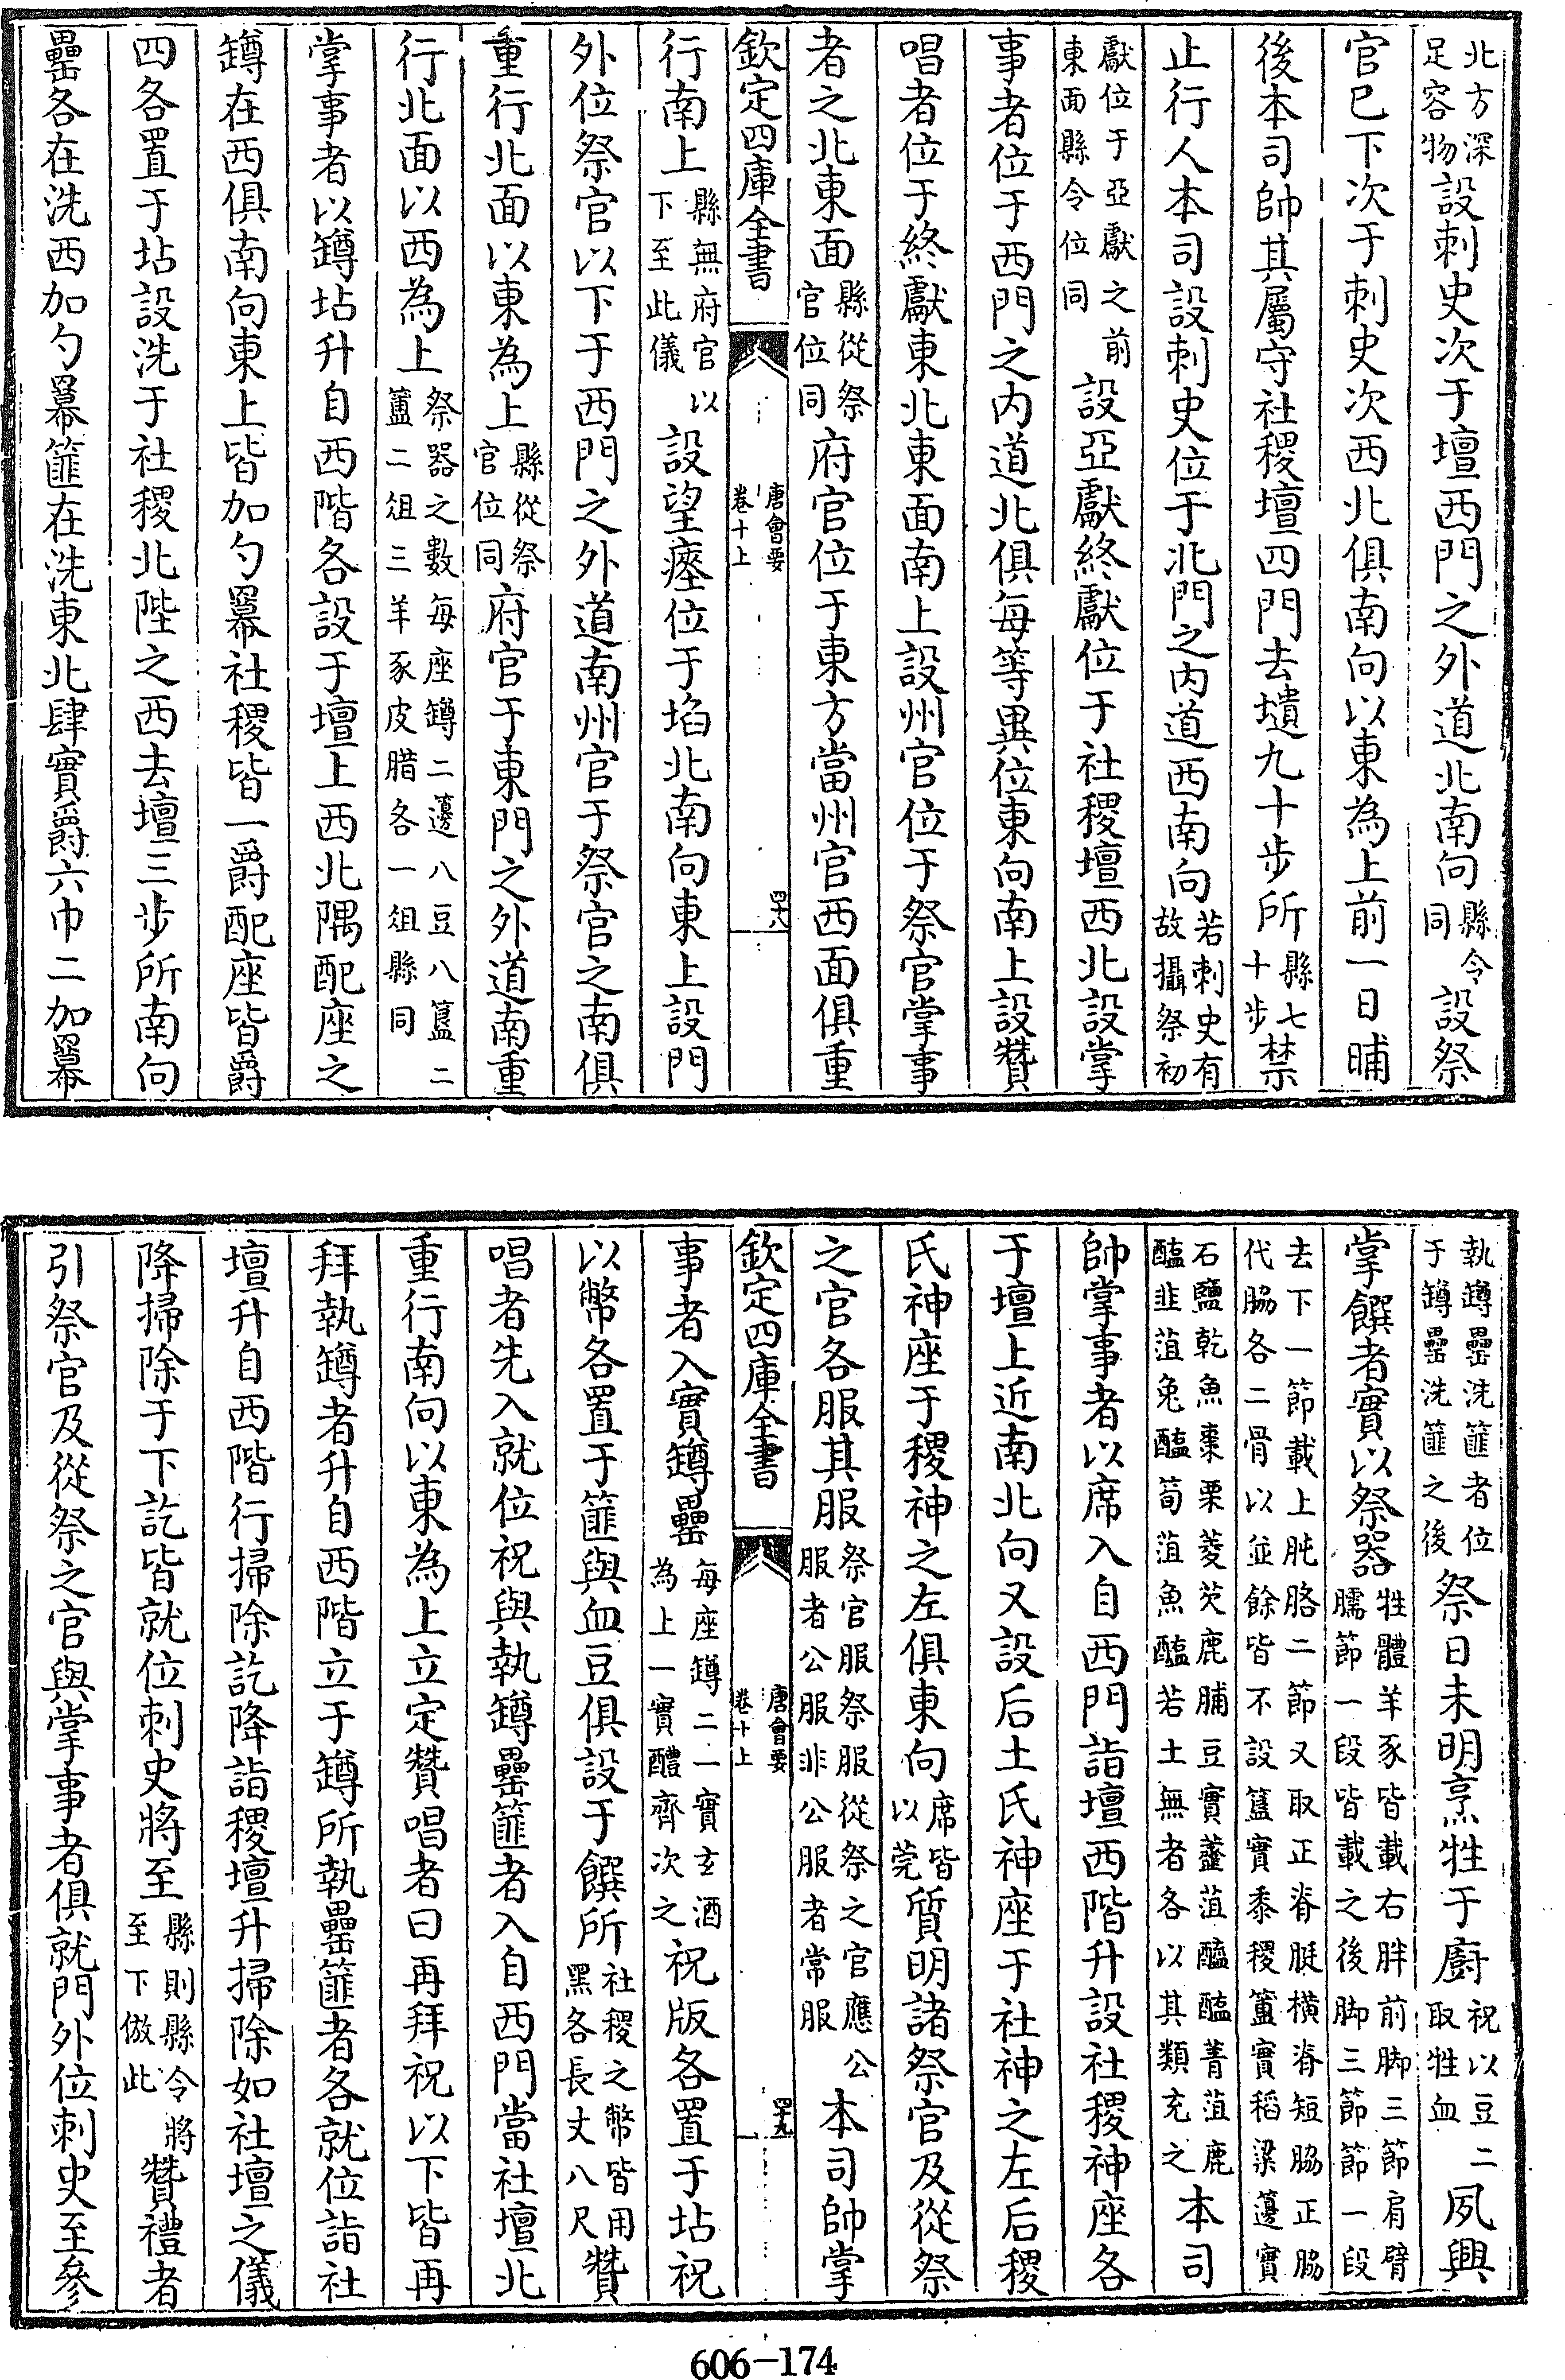 北方深足容物設刺史次于壇西門之外道北南向縣令同設祭
官巳下次于刺史次西北俱南向以東為上前一日晡
後本司帥其屬守社稷壇四門去壝九十步所縣七十步禁
止行人本司設刺史位于北門之内道西南向若刺史有故攝祭初
獻位于亞獻之前東面縣令位同設亞獻終獻位于社稷壇西北設掌
事者位于西門之内道北俱每等異位東向南上設贊
唱者位于終獻東北東面南上設州官位于祭官掌事
者之北東面縣從祭官位同府官位于東方當州官西面俱重
欽定四庫全書 唐會要卷十上 四十八
行南上縣無府官以下至此儀設望瘞位于埳北南向東上設門
外位祭官以下于西門之外道南州官于祭官之南俱
重行北面以東為上縣從祭官位同府官于東門之外道南重
行北面以西為上祭器之數每座罇二籩八豆八簋二簠二俎三羊豕皮腊各一俎縣同
掌事者以罇坫升自西階各設于壇上西北隅配座之
罇在西俱南向東上皆加勺羃社稷皆一爵配座皆爵
四各置于坫設洗于社稷北陛之西去壇三步所南向
罍各在洗西加勺羃篚在洗東北肆實爵六巾二加羃
執罇罍洗篚者位于罇罍洗篚之後祭日未明烹牲于廚祝以豆二取牲血夙興
掌饌者實以祭器牲體羊豕皆載右胖前脚三節肩臂臑節一段皆載之後脚三節節一段
去下一節載上肫胳二節又取正脊脡橫脊短脇正脇代脇各二骨以並餘皆不設簋實黍稷簠實稻粱籩實
石鹽乾魚棗栗菱芡鹿脯豆實虀菹醓醢菁菹鹿醢韭菹兔醢筍菹魚醢若土無者各以其類充之本司
帥掌事者以席入自西門詣壇西階升設社稷神座各
于壇上近南北向又設后土氏神座于社神之左后稷
氏神座于稷神之左俱東向席皆以莞質明諸祭官及從祭
之官各服其服祭官服祭服從祭之官應公服者公服非公服者常服本司帥掌
欽定四庫全書 唐會要卷十上 四十九
事者入實罇罍每座罇二一實玄酒為上一實醴齊次之祝版各置于坫祝
以幣各置于篚與血豆俱設于饌所社稷之幣皆用黑各長丈八尺贊
唱者先入就位祝與執罇罍篚者入自西門當社壇北
重行南向以東為上立定贊唱者曰再拜祝以下皆再
拜執罇者升自西階立于罇所執罍篚者各就位詣社
壇升自西階行掃除訖降詣稷壇升掃除如社壇之儀
降掃除于下訖皆就位刺史將至縣則縣令將至下倣此贊禮者
引祭官及從祭之官與掌事者俱就門外位刺史至參
606-174